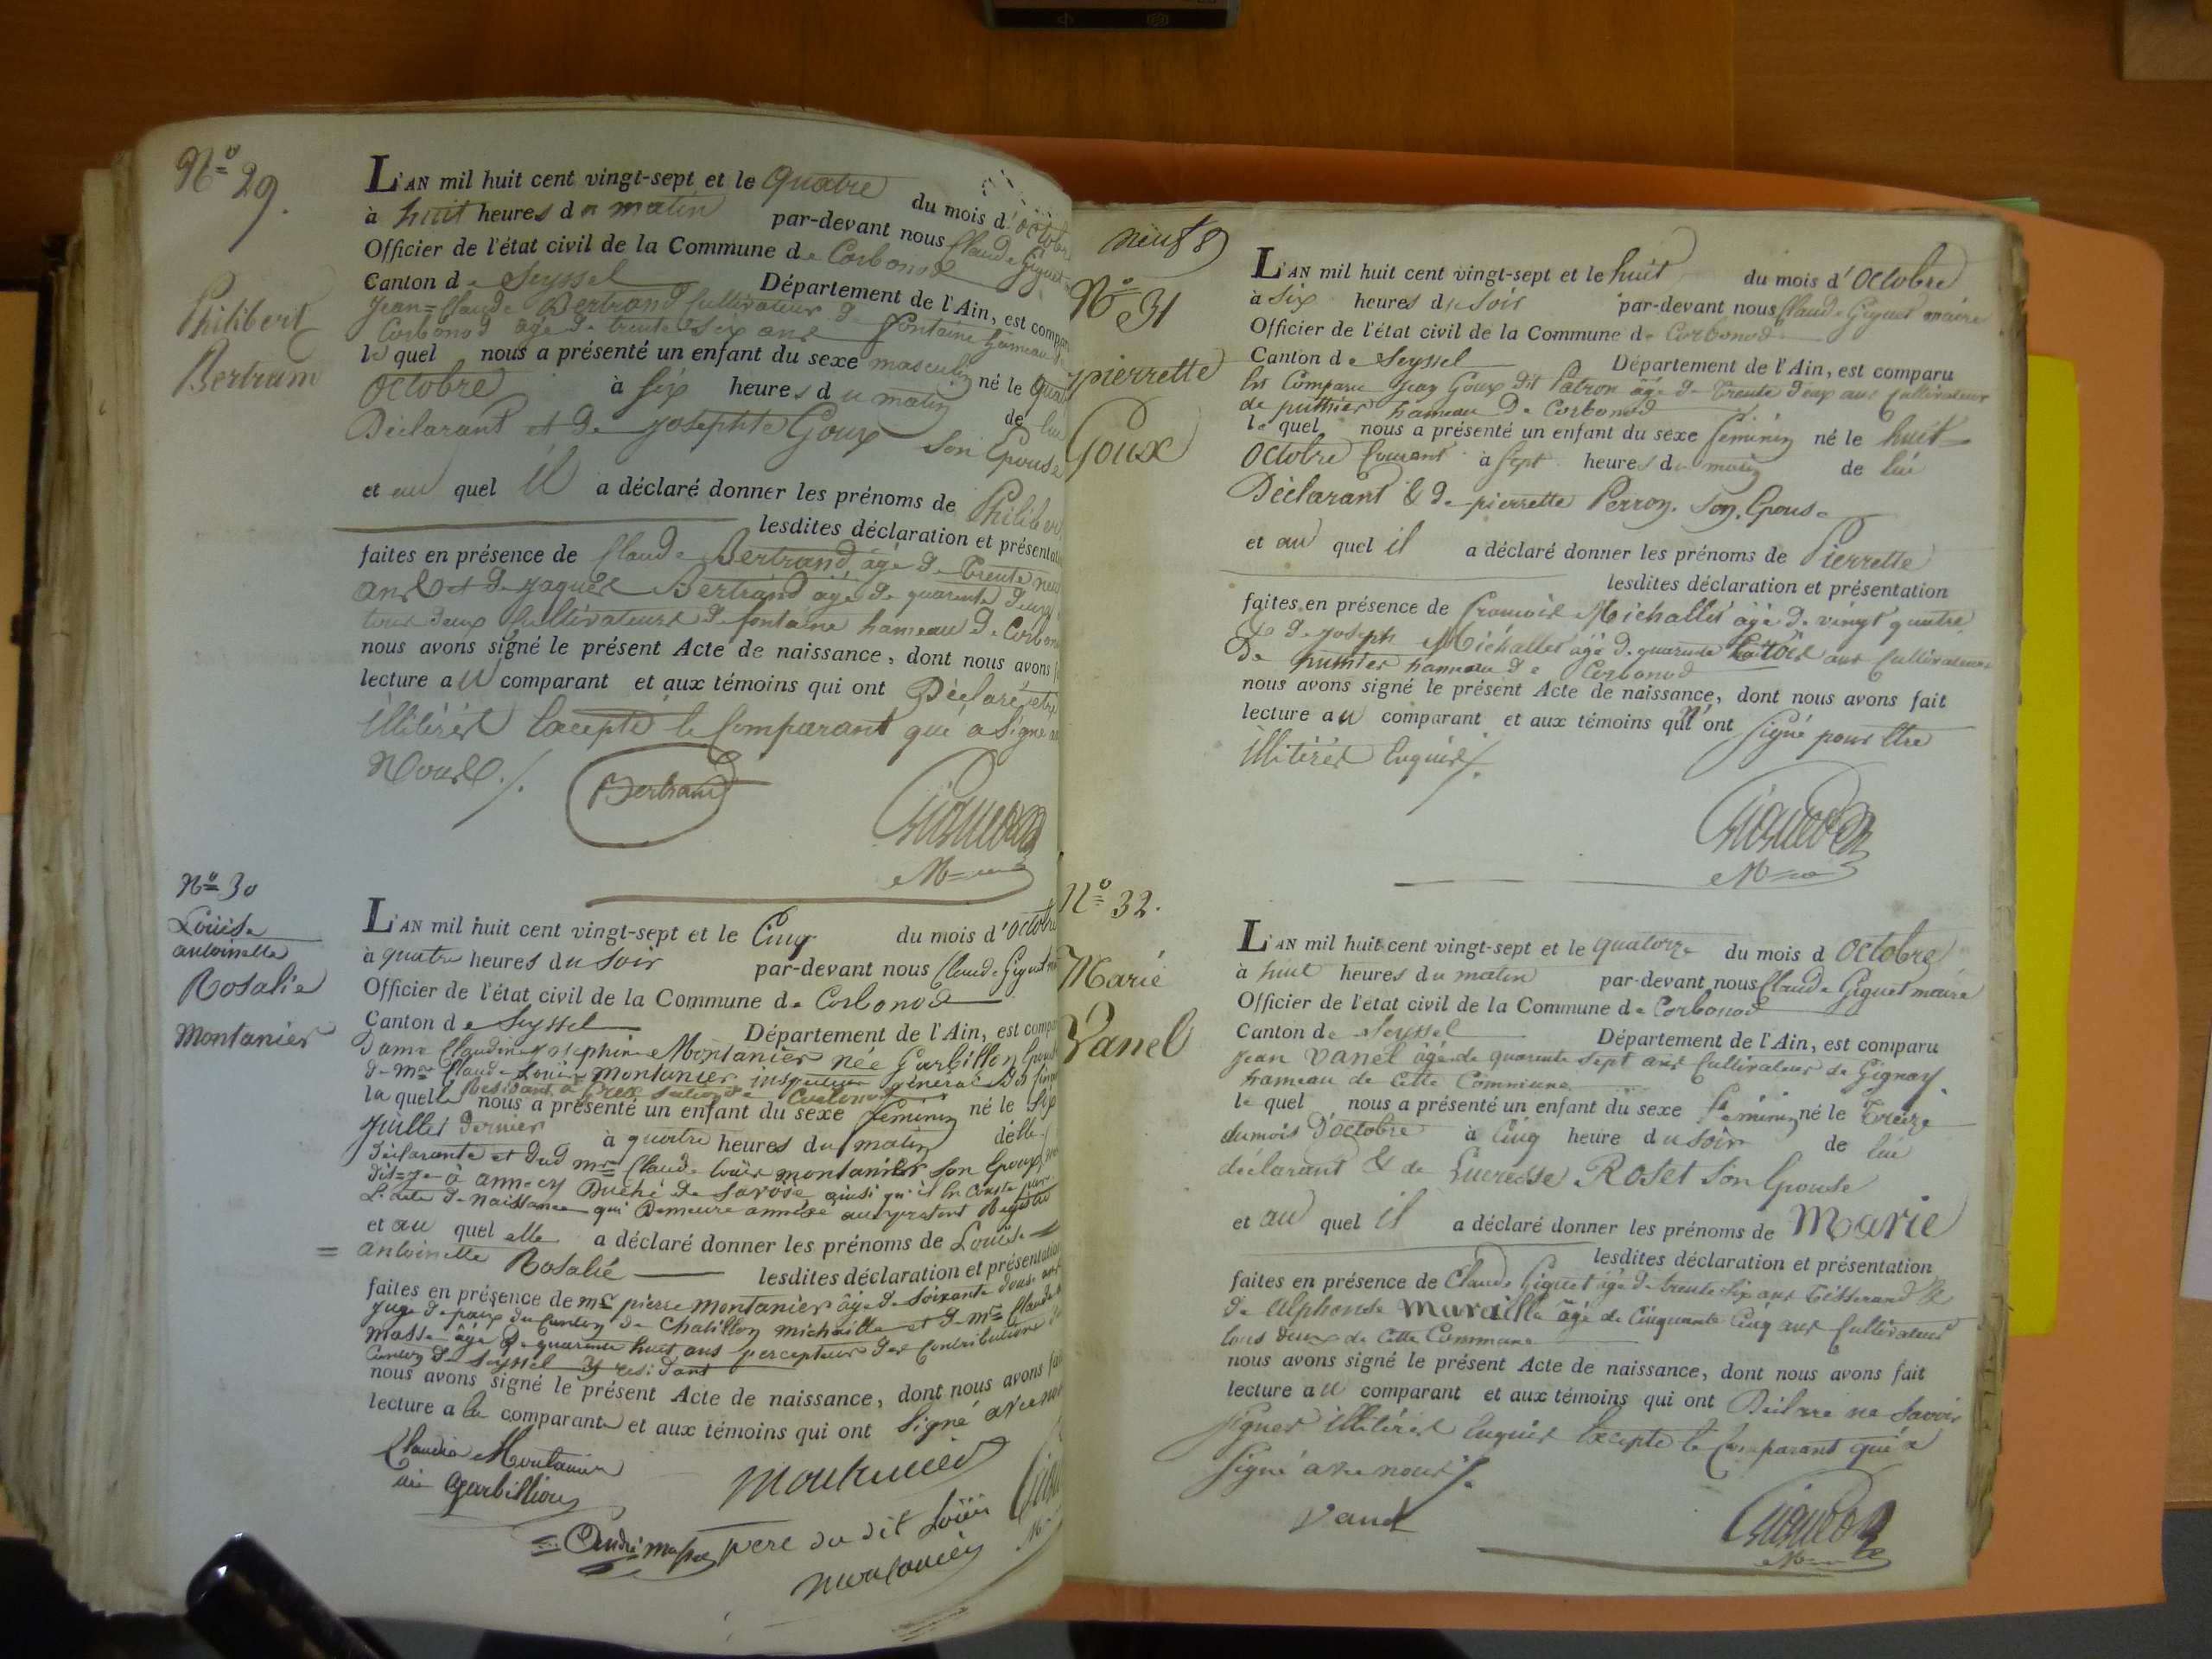 N.º 29.
Philibert
Bertrand
L'AN mil huit cent vingt-sept et le quatre du mois d'octobre
à huit heures du matin par-devant nous Claude Giguet
Officier de l'état civil de la Commune de Corbonod
Canton de Seyssel Département de l'Ain, est compar
Jean=Claude Bertrand Cultivateur de fontaine hameau de
Corbonod âgé de trente six ans
lequel nous a présenté un enfant du sexe masculin né le quat
octobre à six heures du matin de lui
Déclarant et de josephte Goux son Epouse
et au quel il a déclaré donner les prénoms de Philibert
lesdites déclaration et présentation
faites en présence de Claude Bertrand âgé de trente neuf
ans et de jaques Bertrand âgé de quarante deux
tous deux Cultivateurs de fontaine hameau de Corbon
nous avons signé le présent Acte de naissance, dont nous avons f
lecture au comparant et aux témoins qui ont Déclaré etre
illitérés Excepté le Comparant qui a signé av
Nous ./.
Bertrand
Giguet
M
N.º 30
Louise
antoinette
Rosalie
montanier
L'AN mil huit cent vingt-sept et le Cinq du mois d'octobre
à quatre heures du soir par-devant nous Claude Giguet m
Officier de l'état civil de la Commune de Corbonod
Canton de Seyssel Département de l'Ain, est compar
Dame Claudine josephine Montanier née Garbillon Epouse
de Mr Claude Louis montanier inspecteur général des fin
résidant à Corbonod
laquelle nous a présenté un enfant du sexe féminin né le six
juillet dernier à quatre heures du matin d'elle
déclarante et dud mr Claude louis montanier son Epoux
dis=je à annecy Duché de Savoie ainsi qu'il En Conste par
L'acte de naissance qui Demeure annexé au présent Registre
et au quel elle a déclaré donner les prénoms de Louise
= antoinette Rosalie lesdites déclaration et présentation
faites en présence de mr pierre montanier âgé de soixante douse ans
juge de paix du Canton de Chatillon michaille et de mr Claude
masse âgé de quarante huit ans percepteur des Contributions du
Canton de Seyssel y residant
nous avons signé le présent Acte de naissance, dont nous avons fait
lecture a la comparante et aux témoins qui ont signé avec nous
Claudine Montanier
née Garbillion
montanier
père du dit Loüis
montanier
neuf 9
N.º 31
pierrette
Goux
L'AN mil huit cent vingt-sept et le huit du mois d'octobre
à six heures du soir par-devant nous Claude Giguet maire
Officier de l'état civil de la Commune de Corbonod
Canton de Seyssel Département de l'Ain, est comparu
Est Comparu jean Goux dit Patron âgé de trente deux ans Cultivateur
de puthier hameau de Corbonod
lequel nous a présenté un enfant du sexe féminin né le huit
octobre Courant à sept heures du matin de lui
Déclarant & de pierrette Perron son Epouse
et au quel il a déclaré donner les prénoms de Pierrette
lesdites déclaration et présentation
faites en présence de francois Michallet âgé de vingt quatre
& de joseph Michallet âgé de quarante trois ans Cultivateurs
De puthier hameau de Corbonod
nous avons signé le présent Acte de naissance, dont nous avons fait
lecture au comparant et aux témoins qui n'ont signé pour Etre
illitérés Enquis ./.
Giguet
M
N.º 32.
Marie
Vanel
L'AN mil huit cent vingt-sept et le quatorze du mois d octobre
à huit heures du matin par-devant nous Claude Giguet maire
Officier de l'état civil de la Commune de Corbonod
Canton de Seyssel Département de l'Ain, est comparu
jean vanel âgé de quarante sept ans Cultivateur de Gignay
hameau de Cette Commune
lequel nous a présenté un enfant du sexe féminin né le treize
du mois d'octobre à Cinq heure du soir de lui
déclarant & de Lucresse Roset son Epouse
et au quel il a déclaré donner les prénoms de Marie
lesdites déclaration et présentation
faites en présence de Claude Giguet âgé de trente six ans tisserand &
de alphonse Muraille âgé de Cinquante Cinq ans Cultivateur
tous deux de Cette Commune
nous avons signé le présent Acte de naissance, dont nous avons fait
lecture au comparant et aux témoins qui ont Déclaré ne savoir
signer illitérés Enquis Excepté le Comparant qui a
signé avec nous ./.
Vanel
Giguet
M